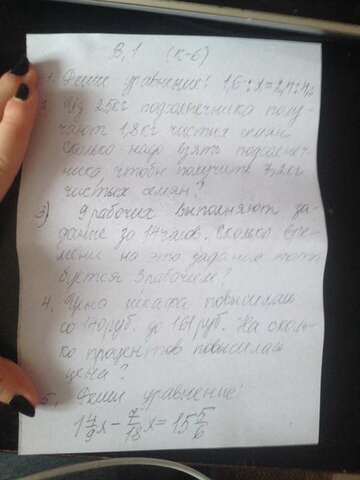 В.1 (К-6)
1. Реши уравнение: 1,6:х=
2. Из 25кг подсолнечника полу-
чают 1,8кг чистых семян.
Сколько надо взять подсолнеч-
ника, чтобы получить 7,2кг
чистых семян?
3) 9 рабочих выполняют за-
дание за 14 часов. Сколько вре-
мени на это задание потре-
буется 3 рабочим?
4. Цена шкафа повысилась
со 140руб. до 161руб. На сколь-
ко процентов повысилась
цена?
5. Реши уравнение:
1 4/9 х - 7/18 х = 15 5/6